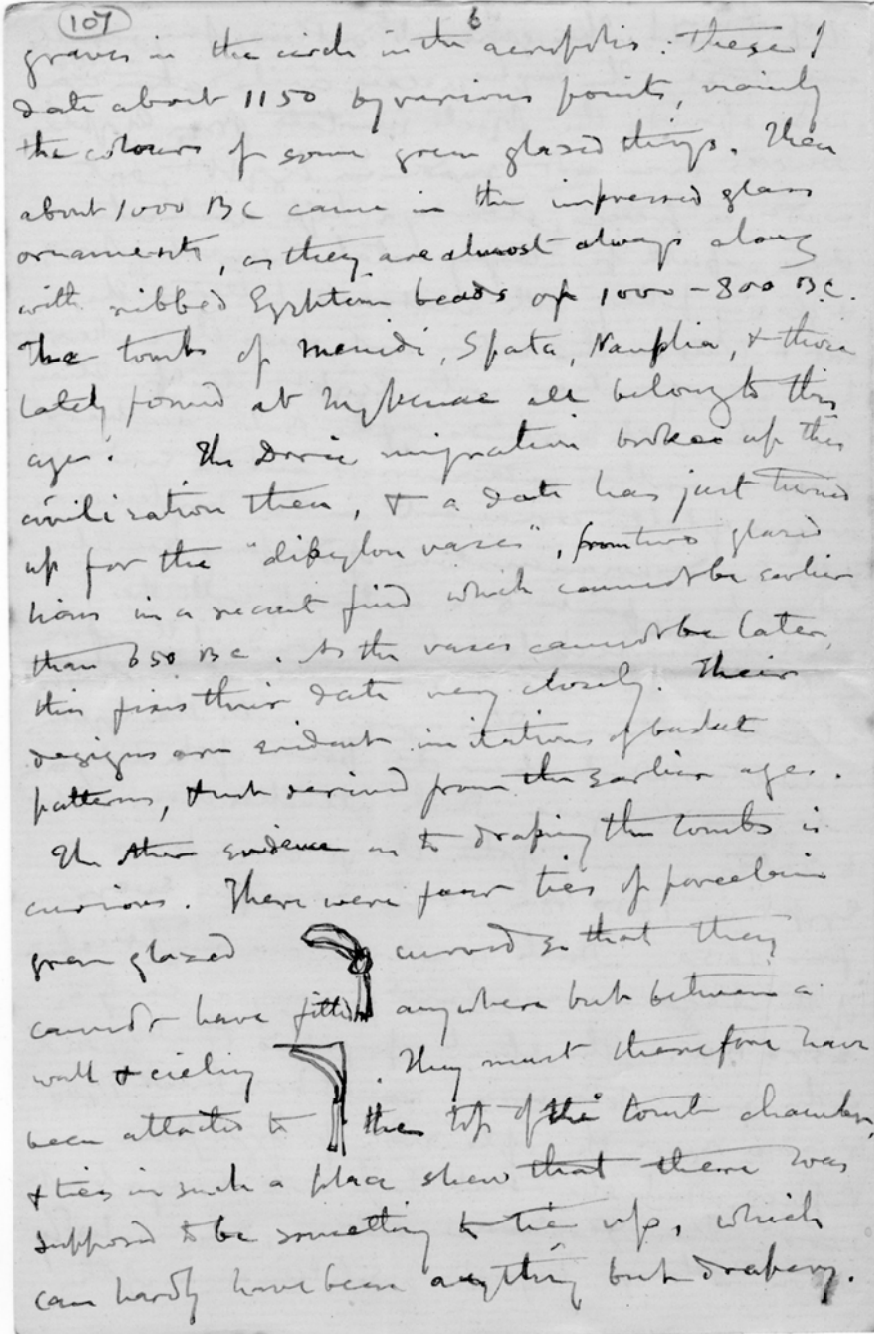 107
6
graves in the circle in the acropolis. These I
date about 1150 by various points, mainly
the colours of some green glazed things. Then
about 1000 BC came in the impressed glass
ornaments, as they are almost always along
with ribbed Egyptian beads of 1000 - 800 B.C.
The tombs of Menidi, Spata, Nauplia, & those
lately found at Mykenae all belong to this
age. The Doric migration broke up this
civilization then, & a date has just turned
up for the "dipylon vases", from two glazed
lions in a recent find which cannot be earlier
than 650 BC. As the vases cannot be later,
this fixes their date very closely. Their
designs are evident imitations of basket
patterns, & not derived from the earlier ages.
The other evidence as to draping the tombs is
curious. There were four ties of porcelain
green glazed curved so that they
cannot have fitted anywhere but between a
wall & cieling. They must therefore have
been attached to the top of the tomb chamber,
& ties in such a place shew that there was
supposed to be something to tie up, which
can hardly have been anything but drapery.